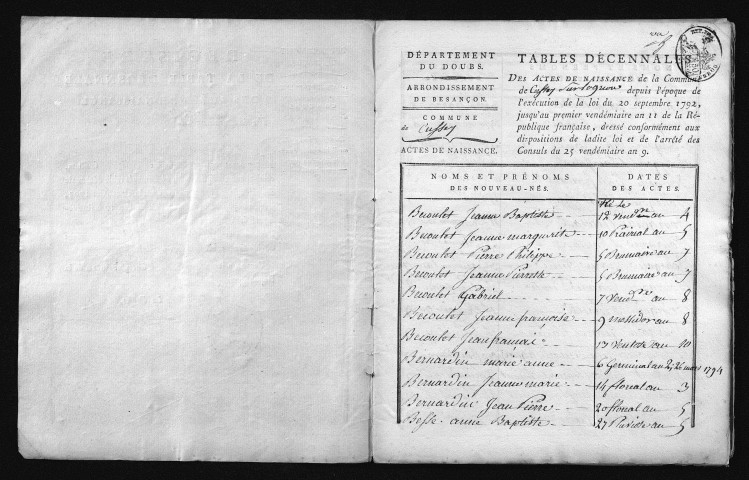 DÉPARTEMENT
DU DOUBS.
ARRONDISSEMENT
DE BESANÇON.
COMMUNE
de Cussey
ACTES DE NAISSANCE.
TABLES DÉCENNALES
DES ACTES DE NAISSANCE de la Commune
de Cussey Sur Lognon depuis l'époque de
l'exécution de la loi du 20 septembre 1792,
jusqu'au premier vendémiaire an 11 de la Ré-
publique française, dressé conformément aux
dispositions de ladite loi et de l'arrêté des
Consuls du 25 vendémiaire an 9.
NOMS ET PRÉNOMS
DES NOUVEAU-NÉS.
DATES
DES ACTES.
Née Le
Becoulet Jeanne Baptiste 12 vendre an 4
Becoulet Jeanne marguerite 10 Prairial an 5
Becoulet Pierre Philippe 5 Brumaire an 7
Becoulet Jeanne Pierrette 5 Brumaire an 7
Becoulet Gabriel 7 vendre an 8
Becoulet Jeanne françoise 9 messidor an 8
Becoulet Jean françois 13 ventose an 10
Bernardin marie anne 6 Germinal an 2, 26 mars 1794
Bernardin Jeanne marie 14 floreal an 3
Bernardin Jean Pierre 20 floreal an 5
Besse anne Baptiste 27 Pluviose an 5